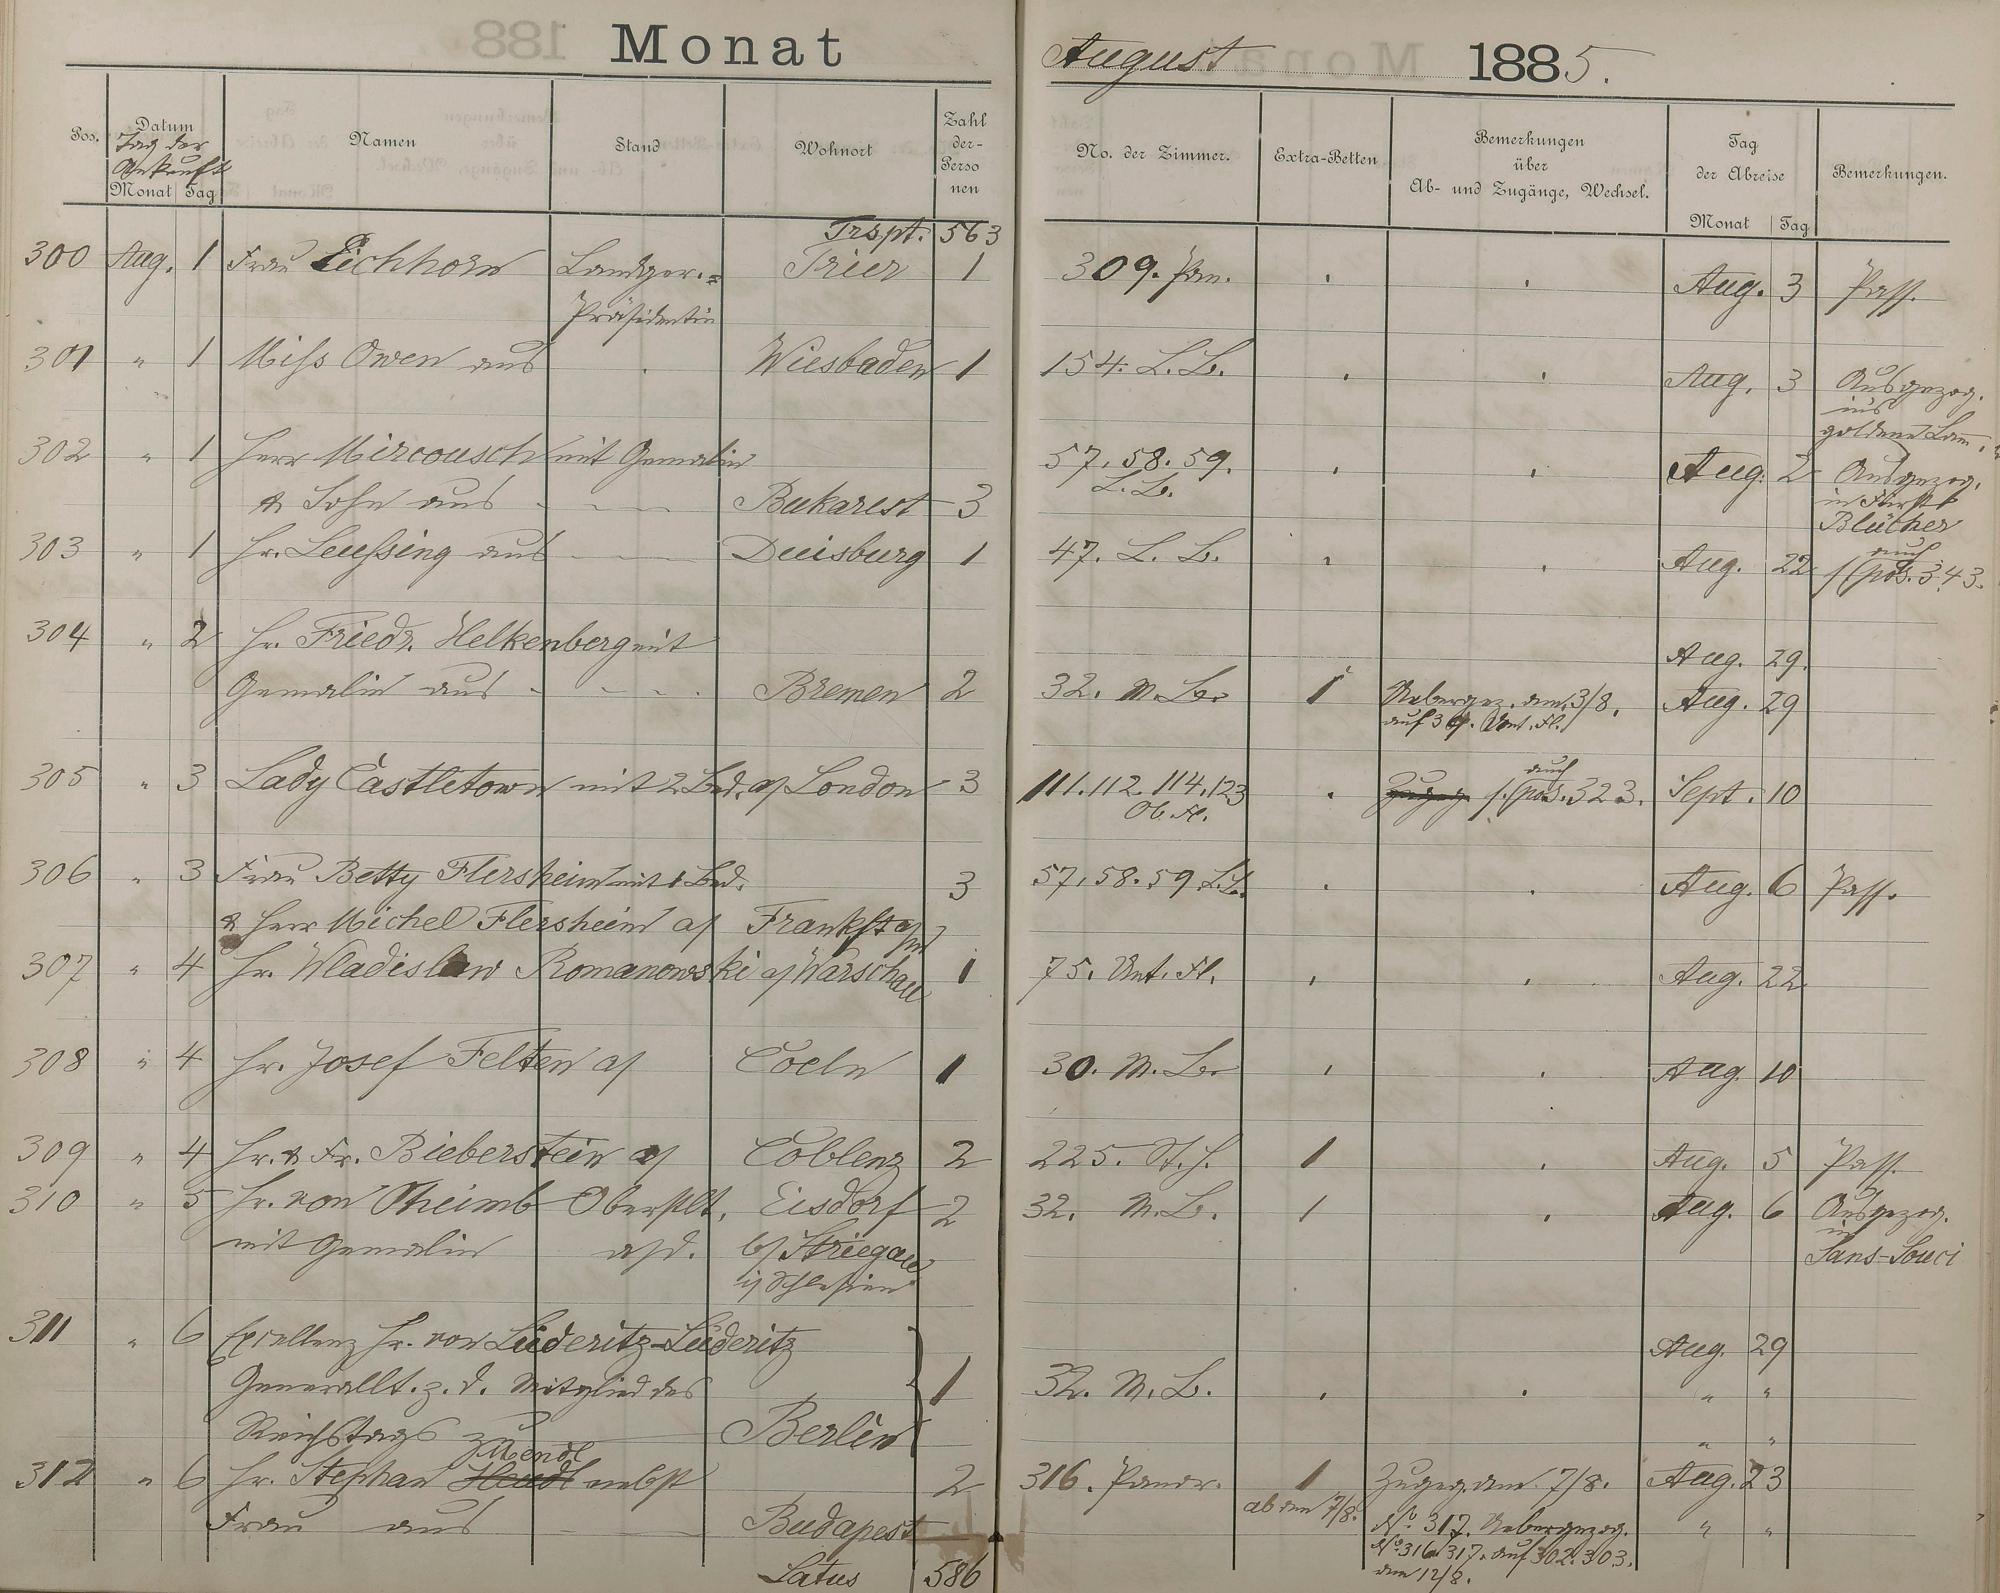 Monat August 1885.
Pos. Datum Tag der Ankunft Monat Tag Namen Stand Wohnort Zahl der Personen No. der Zimmer. Extra-Betten Bemerkungen über Ab- und Zugänge, Wechsel. Tag der Abreise Monat Tag Bemerkungen.
Trspt. 563
300 Aug. 1 Frau Eichhorn Landger.= Trier 1 309. Pan. Aug. 3 Pass.
Präsidentin
301 " 1 Miss Owen aus Wiesbaden 1 154. L. B. Aug. 3 Ausgezog.
ins
goldene Lam
302 " 1 Herr Mircousch mit Gemalin 57. 58. 59. Aug. 2 Ausgezog.
& Sohn aus Bukarest 3 L. B. in Fürst
Blücher
303 " 1 Hr. Leussing aus Duisburg 1 47. L. B. Aug. 22 auch
s/ pos. 343.
304 " 2 Hr. Friedr. Helkenberg mit Aug. 29.
Gemalin aus Bremen 2 32. M. B. 1 Uebergez. am 3/8. Aug. 29
auf 39. Unt. Fl.
305 " 3 Lady Castletown mit 2 Bed. a/ London 3 111. 112. 114. 123 auch s. pos. 323. Sept. 10
Ob. Fl.
306 " 3 Frau Betty Flersheim mit 1 Bed. 3 57. 58. 59 L.B. Aug. 6 Pass.
& Herr Michel Flersheim a/ Frankft a/M
307 " 4 Hr. Wladislaw Romanowski a/ Warschau 1 75. Unt. Fl. Aug. 22
308 " 4 Hr. Josef Felten a/ Coeln 1 30. M. B. Aug. 10
309 " 4 Hr. & Fr. Bieberstein a/ Coblenz 2 225. St. H. 1 Aug. 5 Pass.
310 " 5 Hr. von Oheimb Oberstlt. Eisdorf 2 32. M. B. 1 Aug. 6 Ausgezog.
mit Gemalin a/d. b/ Striegau in
i/ Schlesien Sans-Souci
311 " 6 Excellenz Hr. von Lüderitz-Lüderitz Aug. 29
Generallt. z. d. Mitglied des 1 32. M. B. " "
Reichstags zu Berlin " "
Mendl
312 " 6 Hr. Stephan Hendl nebst 2 316. Pandr. 1 Zugeg. am 7/8. Aug. 23
ab den 7/8.
Frau aus Budapest No. 317. Uebergezog. " "
No. 316/317. auf 302. 303.
Latus 586 am 12/8.